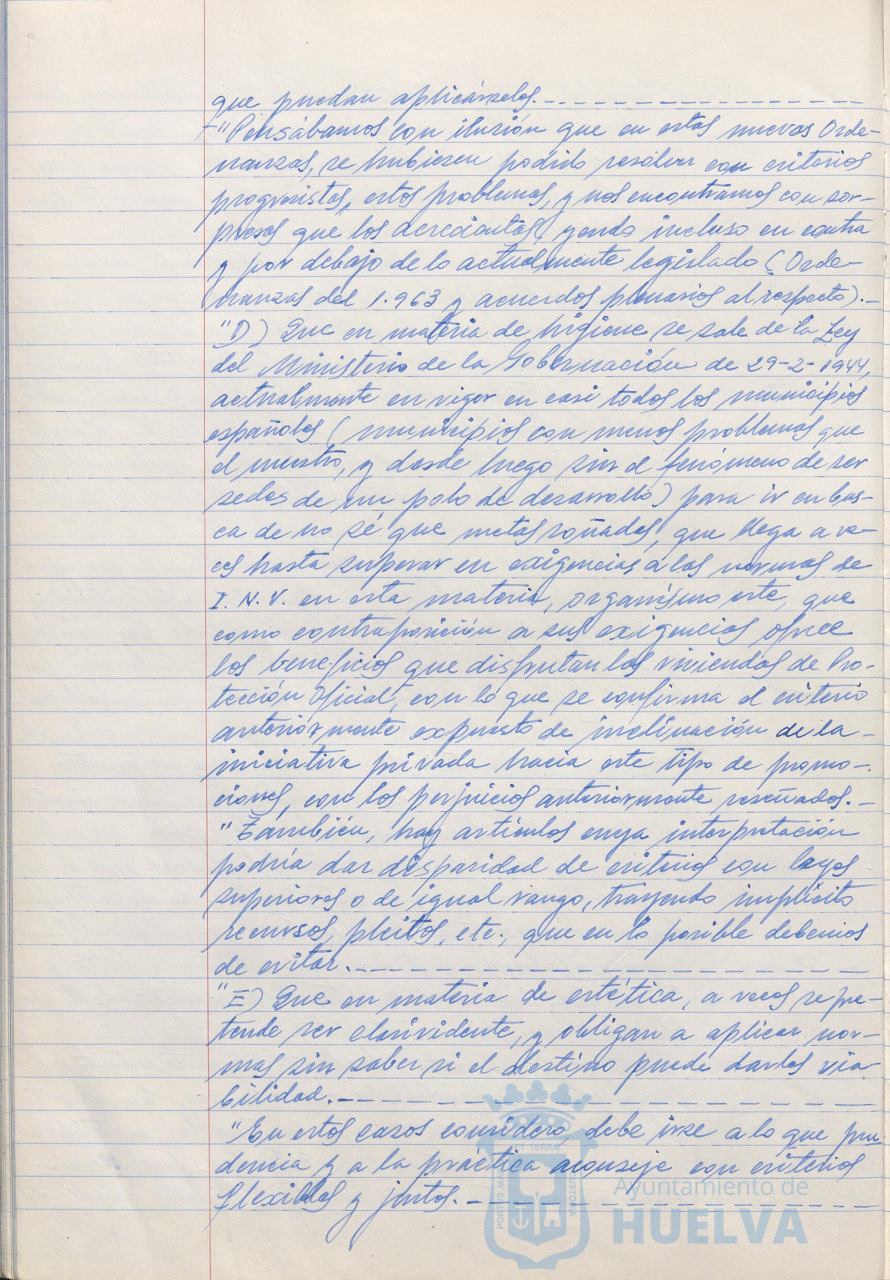 que puedan aplicárseles.----------------
-"Pensábamos con ilusión que en estas nuevas Orde-
nanzas, se hubiesen podido resolver con criterios
progresistas, estos problemas, y nos encontramos con sor-
presas que los acrecientas, yendo incluso en contra
y por debajo de lo actualmente legislado (Orde-
nanzas del 1.963 y acuerdos plenarios al respecto).-
"D) Que en materia de higiene se sale de la Ley
del Ministerio de la Gobernación de 29-2-1944,
actualmente en vigor en casi todos los municipios
españoles (municipios con menos problemas que
el nuestro, y desde luego sin el fenómeno de ser
sedes de un polo de desarrollo) para ir en bus-
ca de no sé que metas soñadas, que llega a ve-
ces hasta superar en exigencias a las normas de
I.N.V. en esta materia, organismo este, que
como contraposición a sus exigencias ofrece
los beneficios que disfrutan las viviendas de Pro-
tección Oficial, con lo que se confirma el criterio
anteriormente expuesto de inclinación de la-
iniciativa privada hacia este tipo de promo-
ciones, con los perjuicios anteriormente reseñados.-
"También, hay artículos cuya interpretación
podría dar disparidad de criterios con leyes
superiores o de igual rango, trayendo implícito
recursos, pleitos, etc., que en lo posible debemos
de evitar.----------------
"E) Que en materia de estética, a veces se pre-
tende ser clarividente, y obligan a aplicar nor-
mas sin saber si el destino puede darles via-
bilidad.----------------
"En estos casos considero debe irse a lo que pru-
dencia y a la práctica aconseje con criterios
flexibles y justos.----------------
Ayuntamiento de
HUELVA